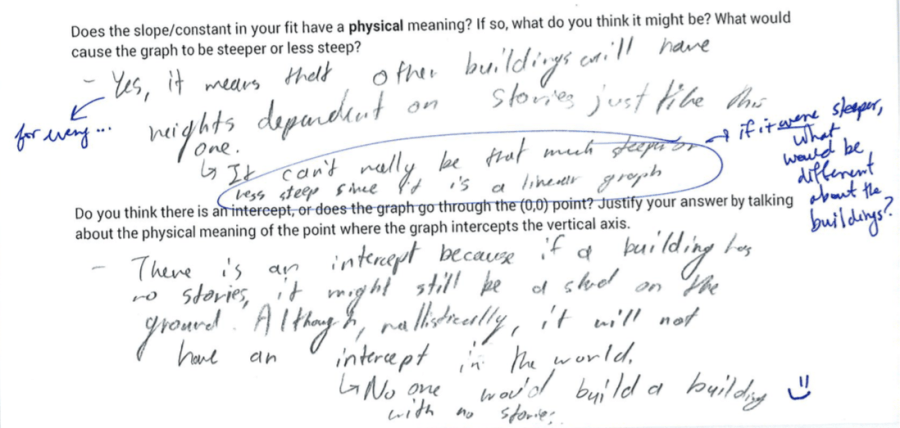 Does the slope/constant in your fit have a physical meaning? If so, what do you think it might be? What would
cause the graph to be steeper or less steep?
- Yes, it means that other buildings will have
heights dependent on stories just like this
one.
↳ It can't really be that much steeper or
less steep since it is a linear graph
for every...
→ if it were steeper,
what
would be
different
about the
buildings?
Do you think there is an intercept, or does the graph go through the (0,0) point? Justify your answer by talking
about the physical meaning of the point where the graph intercepts the vertical axis.
- There is an intercept because if a building has
no stories, it might still be a shed on the
ground. Although, rallistically, it will not
have an intercept in the world.
↳ No one would build a building
with no stories.